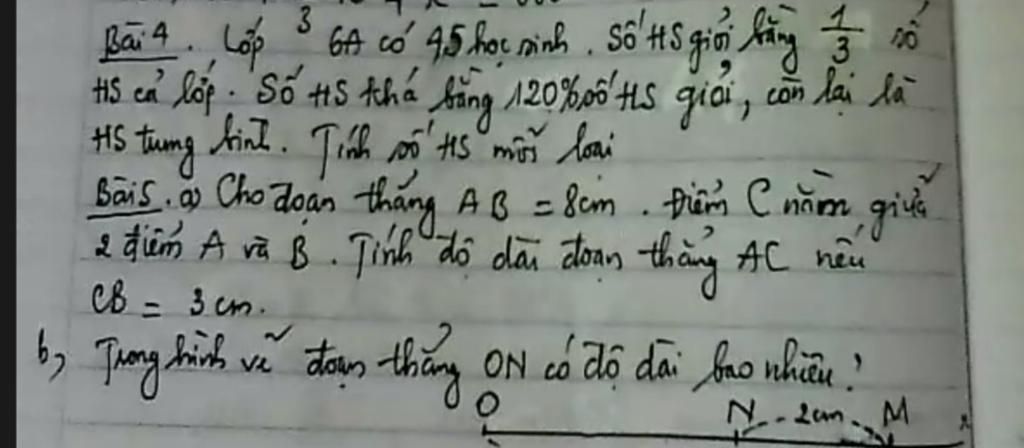 Bài 4. Lớp 6A có 45 học sinh. Số HS giỏi bằng 1/3 số
HS cả lớp. Số HS khá bằng 120% số HS giỏi, còn lại là
HS trung bình. Tính số HS mỗi loại
Bài 5. a) Cho đoạn thẳng AB = 8cm. Điểm C nằm giữa
2 điểm A và B. Tính độ dài đoạn thẳng AC nếu
CB = 3 cm.
b, Trong hình vẽ đoạn thẳng ON có độ dài bao nhiêu?
O N 2cm M x